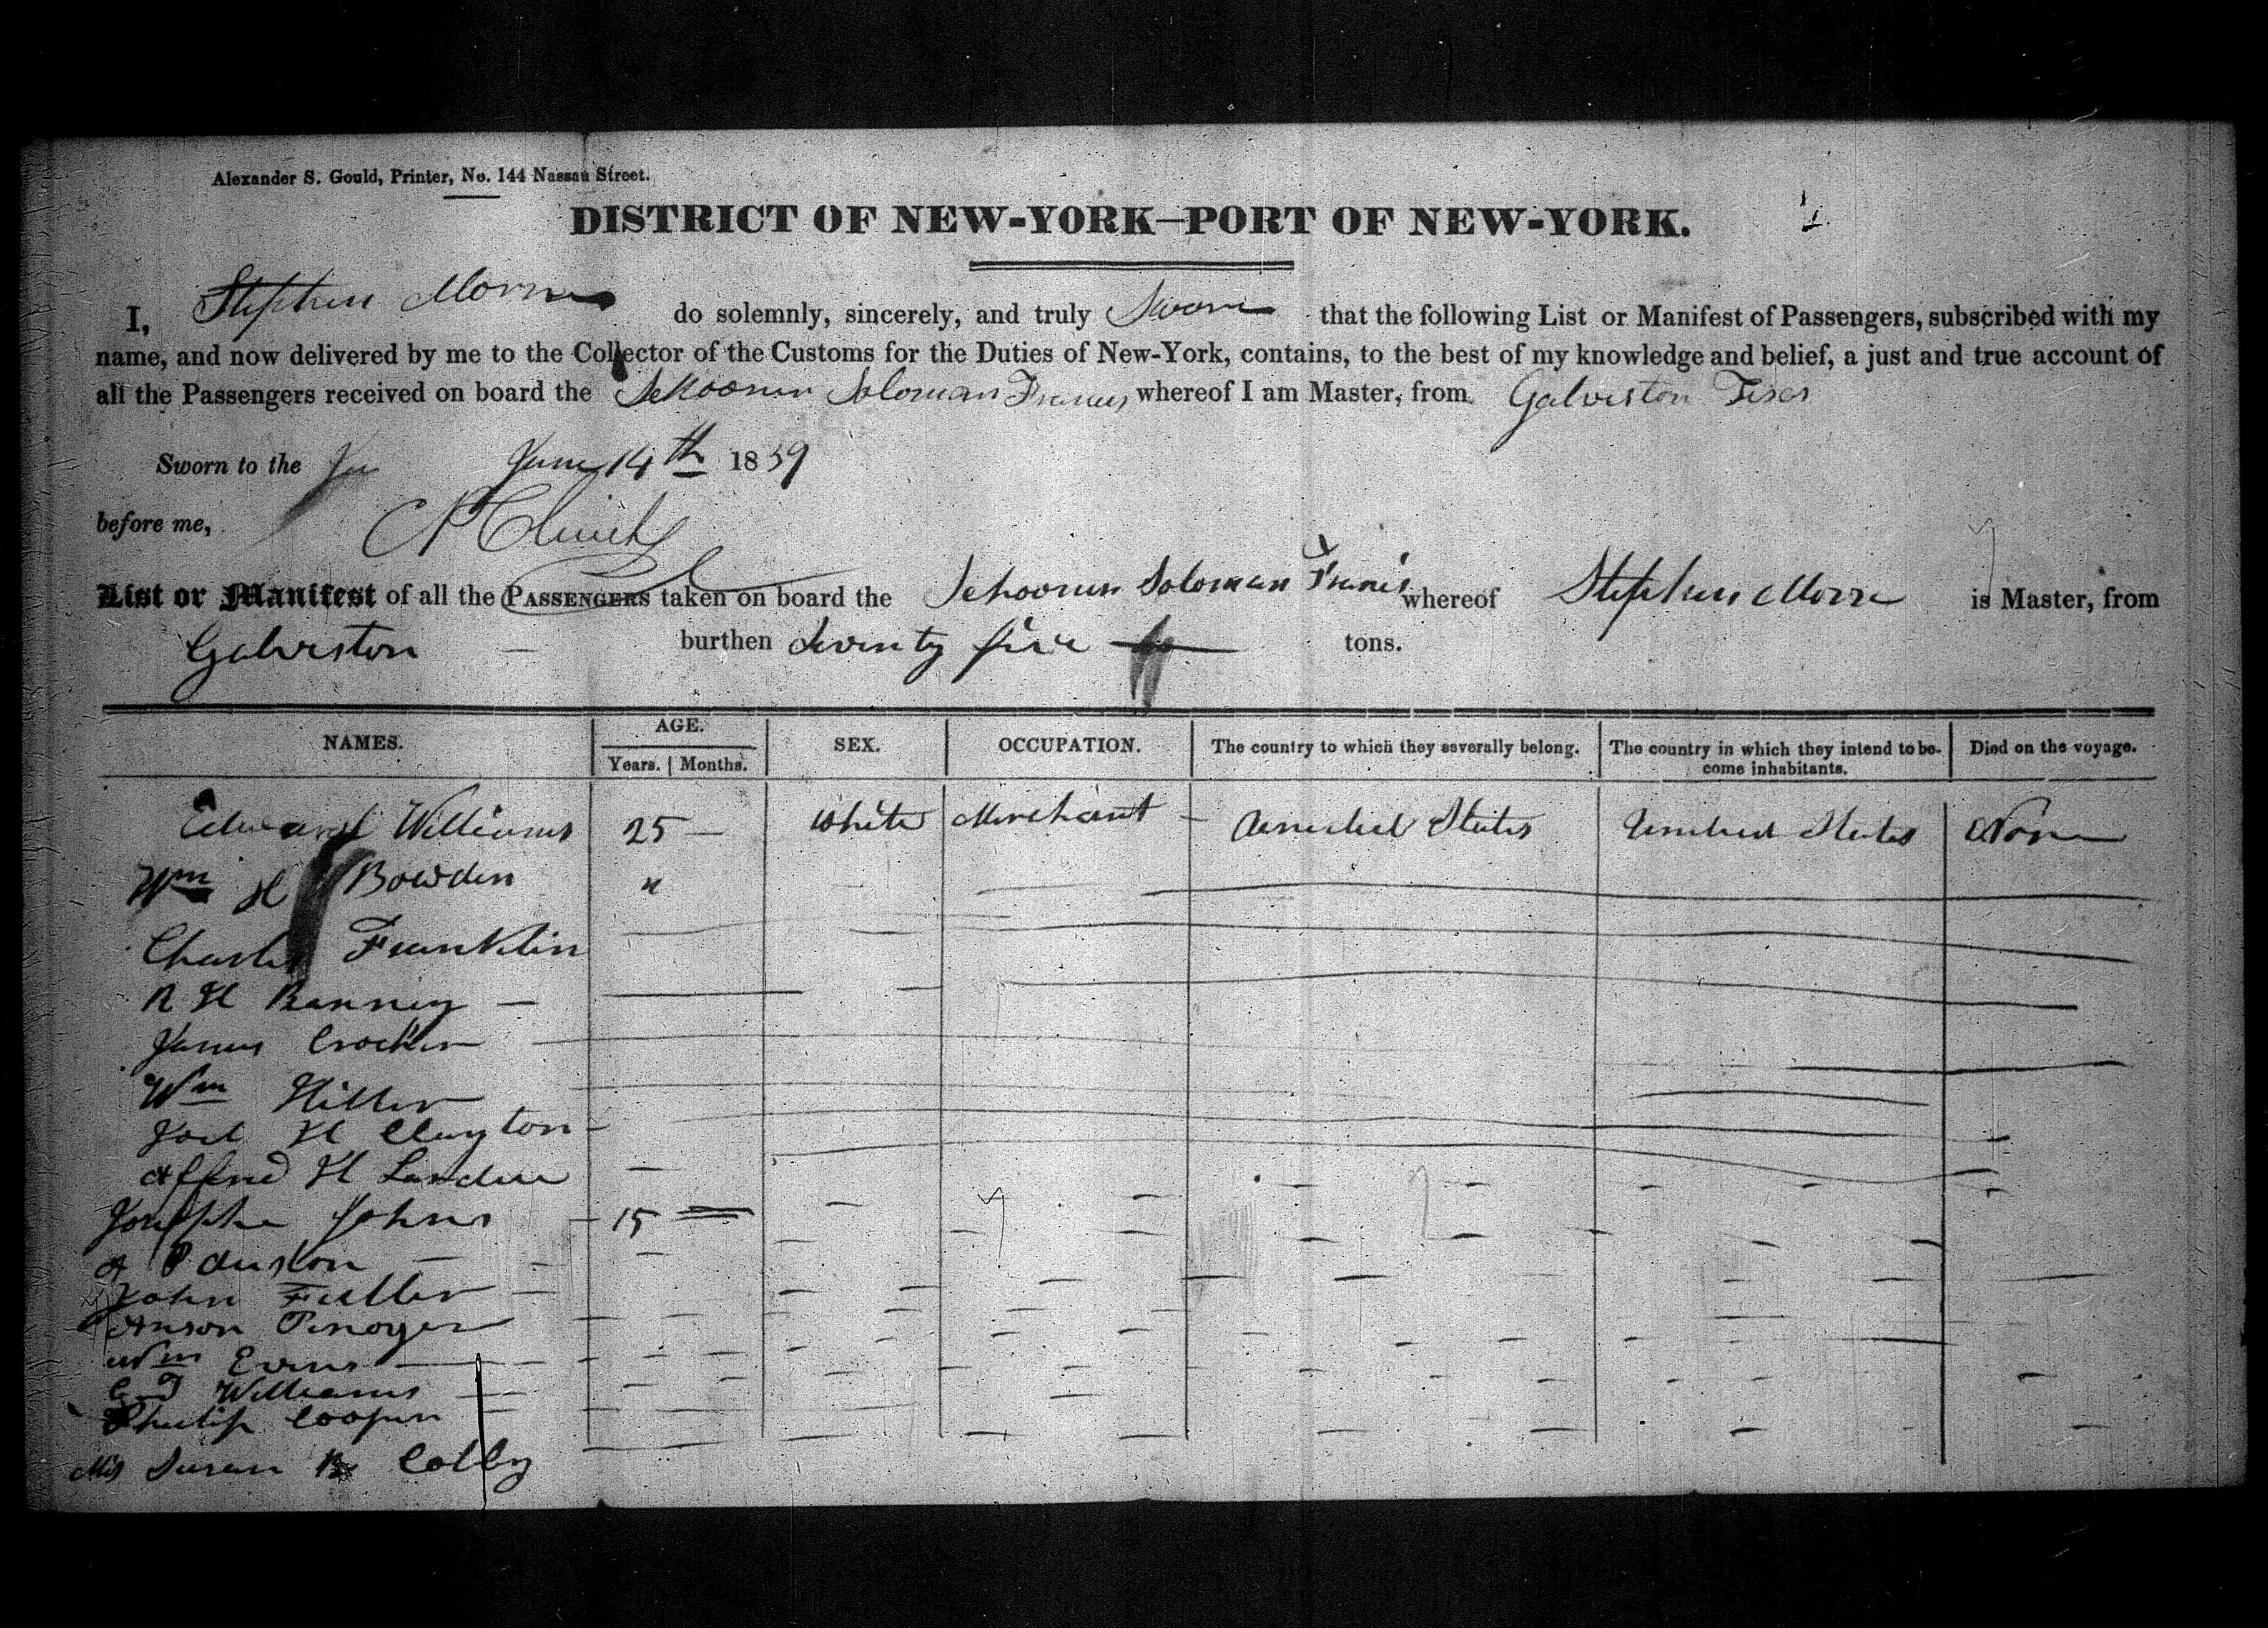 Alexander S. Gould, Printer, No. 144 Nassau Street.
DISTRICT OF NEW-YORK—PORT OF NEW-YORK.
I, Stephen do solemnly, sincerely, and truly Swore that the following List or Manifest of Passengers, subscribed with my
name, and now delivered by me to the Collector of the Customs for the Duties of New-York, contains, to the best of my knowledge and belief, a just and true account of
all the Passengers received on board the Schooner Soloman Francis whereof I am Master, from Galveston
Sworn to the June 14th 1839
before me,
List or Manifest of all the PASSENGERS taken on board the Schooner Soloman Francis whereof Stephen is Master, from
Galveston — burthen Seventy five tons.
NAMES. AGE. SEX. OCCUPATION. The country to which they severally belong. The country in which they intend to be- Died on the voyage.
Years. Months. come inhabitants.
Edward Williams 25 — White Merchant — United States United States None
Wm H Bowden "
Charles Franklin
R H Banney —
James Crocker
Wm Hiller
Joel H Clayton
H
Johns 15
A
John Fuller —
Anson Pinoyer
Wm Evans
Williams
Philip Cooper
Mis Susan Colby